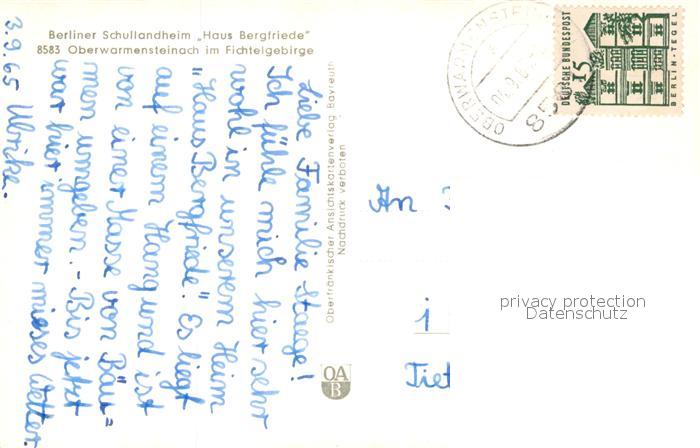 Berliner Schullandheim „Haus Bergfriede"
8583 Oberwarmensteinach im Fichtelgebirge
Liebe Familie Staege!
Ich fühle mich hier sehr
wohl in unserem Heim
"Haus Bergfriede". Es liegt
auf einem Hang und ist
von einer Masse von Bäu=
men umgeben. - Bis jetzt
war hier immer mieses Wetter
3.9.65 Ulrike.
Oberfränkischer Ansichtskartenverlag Bayreuth
Nachdruck verboten
OA
B
OBERWARMENSTEIN
858
DEUTSCHE BUNDESPOST
15
BERLIN-TEGEL
An
i
Tiet
privacy protection
Datenschutz